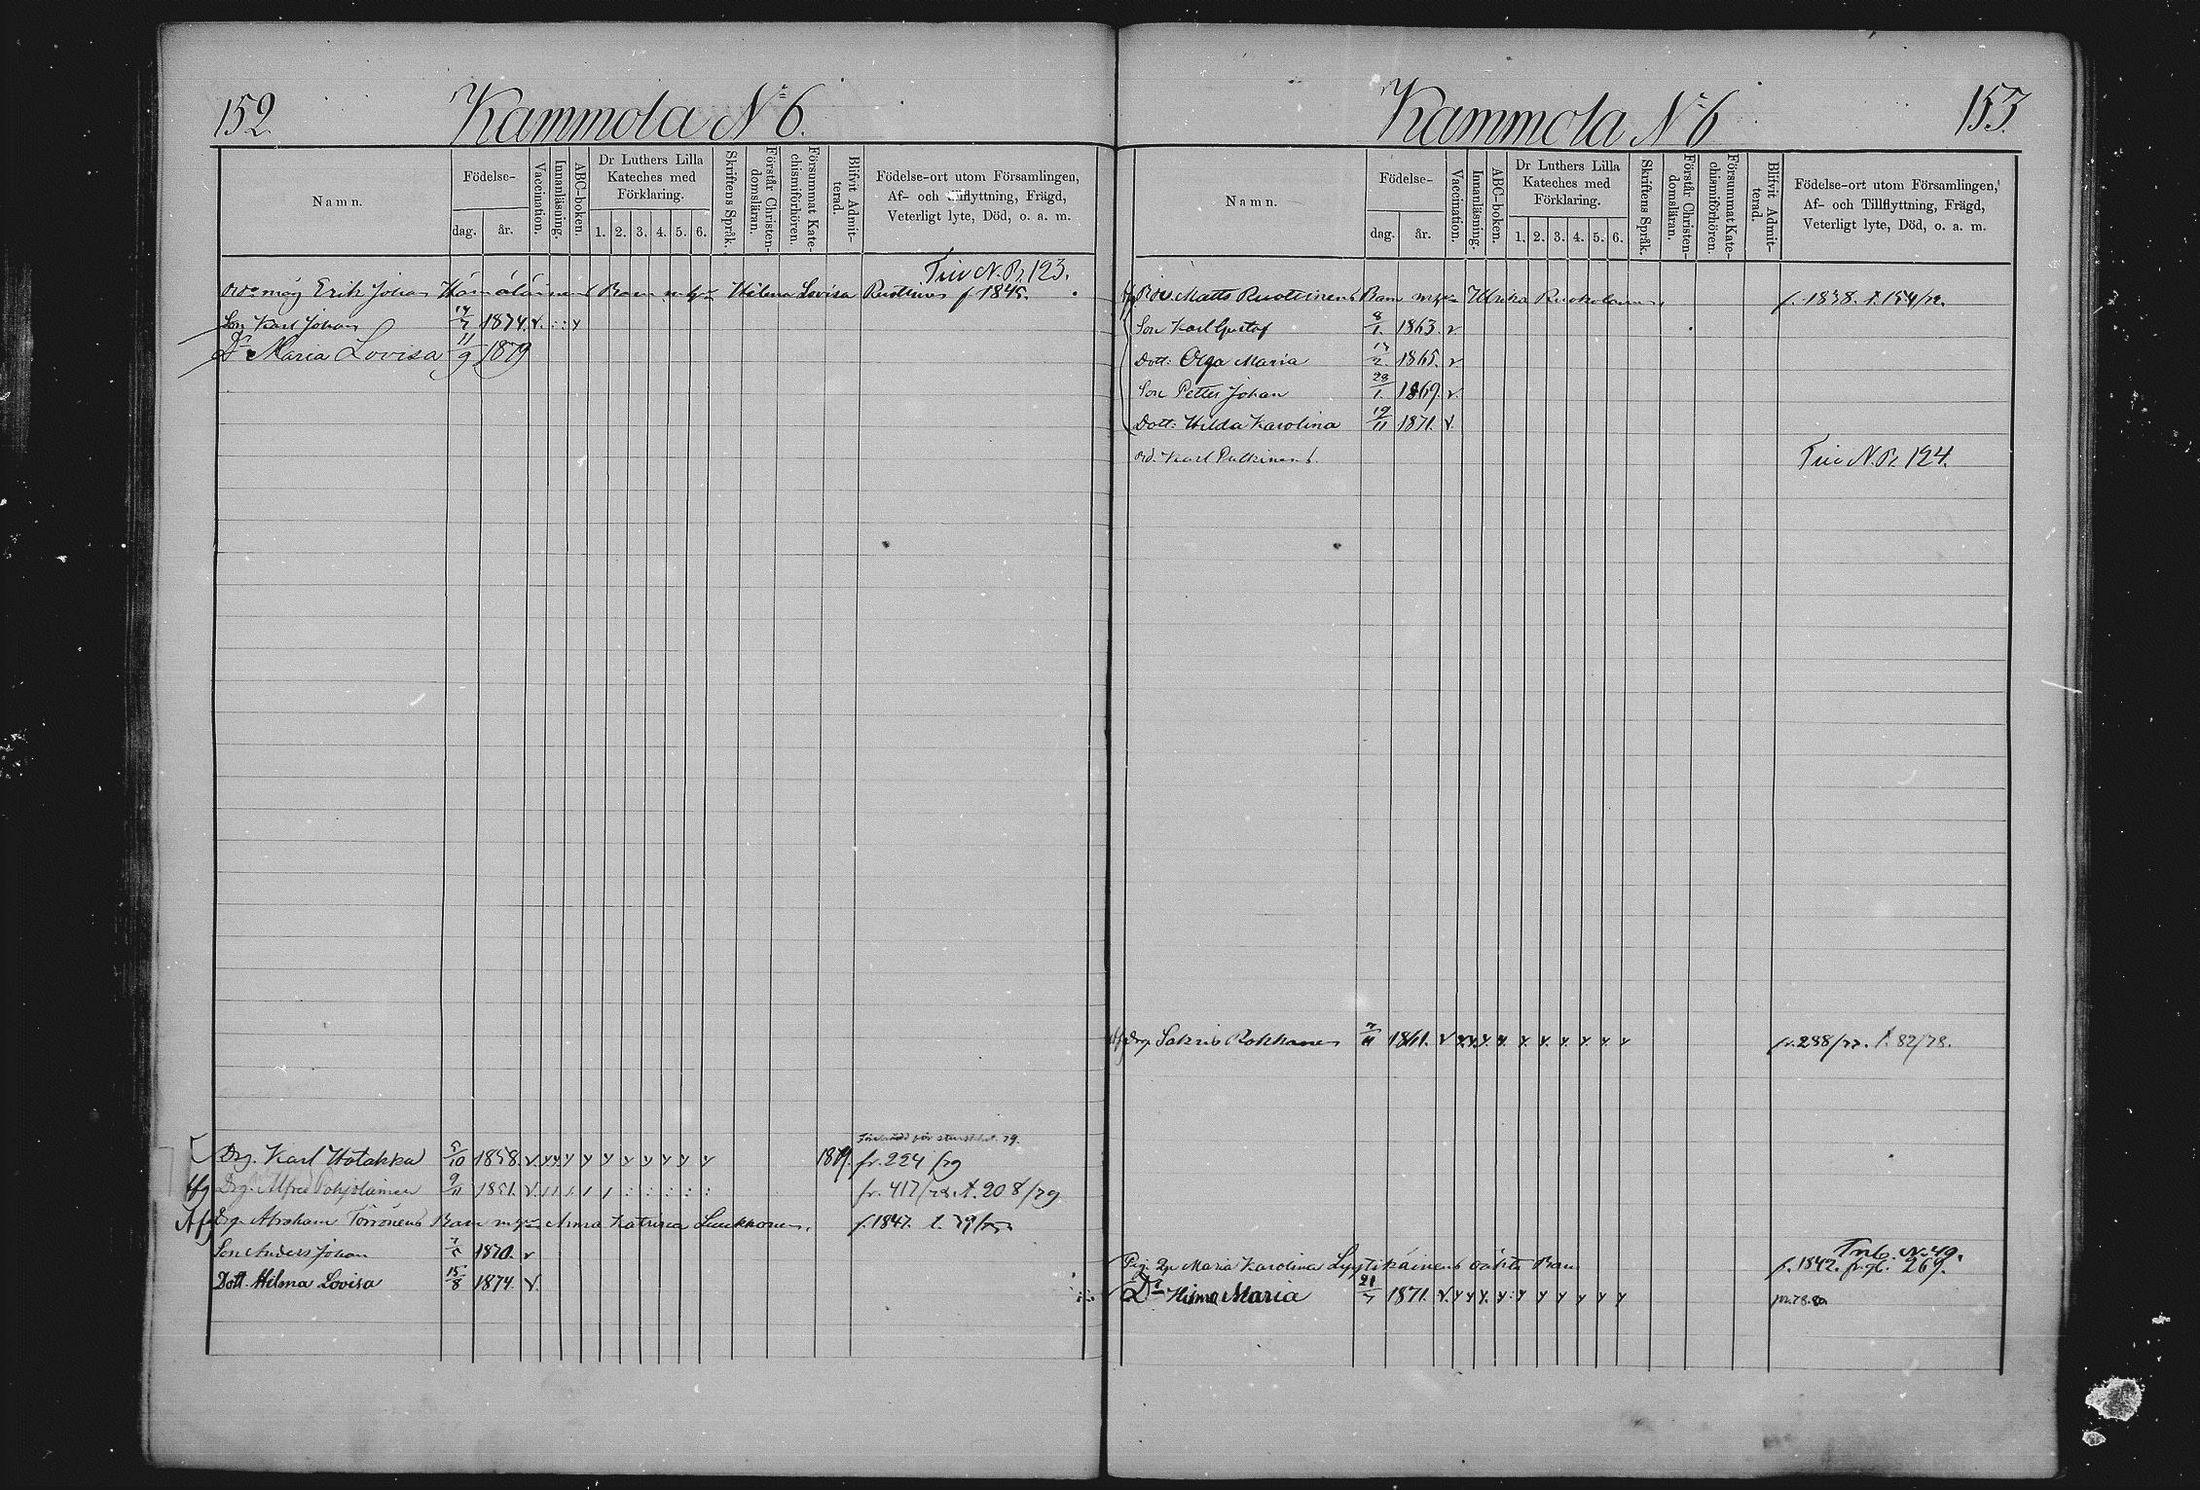 152.
Kammola Nº 6.
Namn.
Födelse-
dag.
år.
Vaccination.
Innanläsning.
ABC-boken.
Dr Luthers Lilla
Kateches med
Förklaring.
1. 2. 3. 4. 5. 6.
Skriftens Språk.
Förstår Christen-
domsläran.
Försummat Kate-
chismiförhören.
Blifvit Admit-
terad.
Födelse-ort utom Församlingen,
Af- och Tillflyttning, Frägd,
Veterligt lyte, Död, o. a. m.
123.
måg Erik Johan Hämäläinens Barn m. Helena Lovisa Ruotinen f. 1845.
Son Karl Johan 7 1874. v.
Dr Maria Lovisa 11/9 1879
Förbjudd för 79.
Drg. Karl Hotakka 5/10 1858. v. 1879. fr. 224/79
Drg. Alfred Pohjolainen 9/11 1851. v. fr. 417/78. t. 208/79
Afg Drg. Abraham Törrönens Barn m. Anna Katrina Luukkonen. f. 1847. t. 79/75
Son Anders Johan 1870. v
Dott. Hilma Lovisa 15/8 1874 v.
Kammola Nº 6
153.
Namn.
Födelse-
dag.
år.
Vaccination.
Innanläsning.
ABC-boken.
Dr Luthers Lilla
Kateches med
Förklaring.
1. 2. 3. 4. 5. 6.
Skriftens Språk.
Förstår Christen-
domsläran.
Försummat Kate-
chismiförhören.
Blifvit Admit-
terad.
Födelse-ort utom Församlingen,
Af- och Tillflyttning, Frägd,
Veterligt lyte, Död, o. a. m.
Matts Ruotinens Barn m. Ulrika f. 1838. t. 154/72.
Son Karl Gustaf 8/1. 1863. v
Dott: Olga Maria 2 1865. v
Son Petter Johan 29/1. 1869. v.
Dott: Hilda Karolina 19/11 1871. v.
Karl Pulkinens. 124.
Drg. Sakris Rokkanen 7/11 1861. v fr. 288/77. t. 82/78.
Nº 49.
Maria Karolina Lyytikäinens oäkta Barn f. 1842. 269.
Dr Hilma Maria 21/7 1871. v. 78.80.